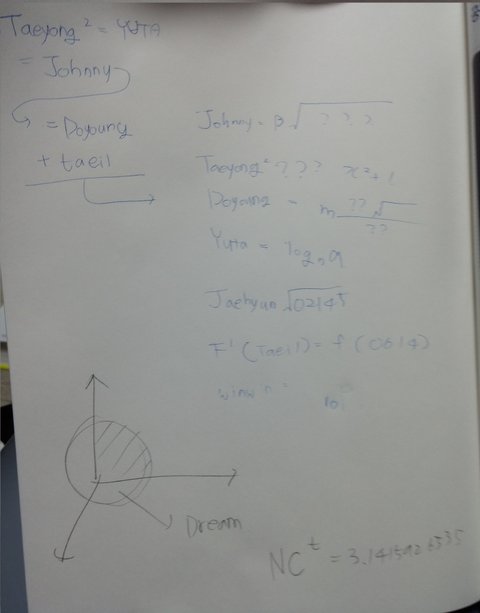 Taeyong² = YUTA
= Johnny
= Doyoung
+ taeil
Johnny = β√???
Taeyong² ??? x²+1
Doyoung = m ??√ / ??
Yuta = logₙa
Jaehyun √02145
F'(Taeil) = f(0614)
winwin =
Dream
NCᵗ = 3.1415926535